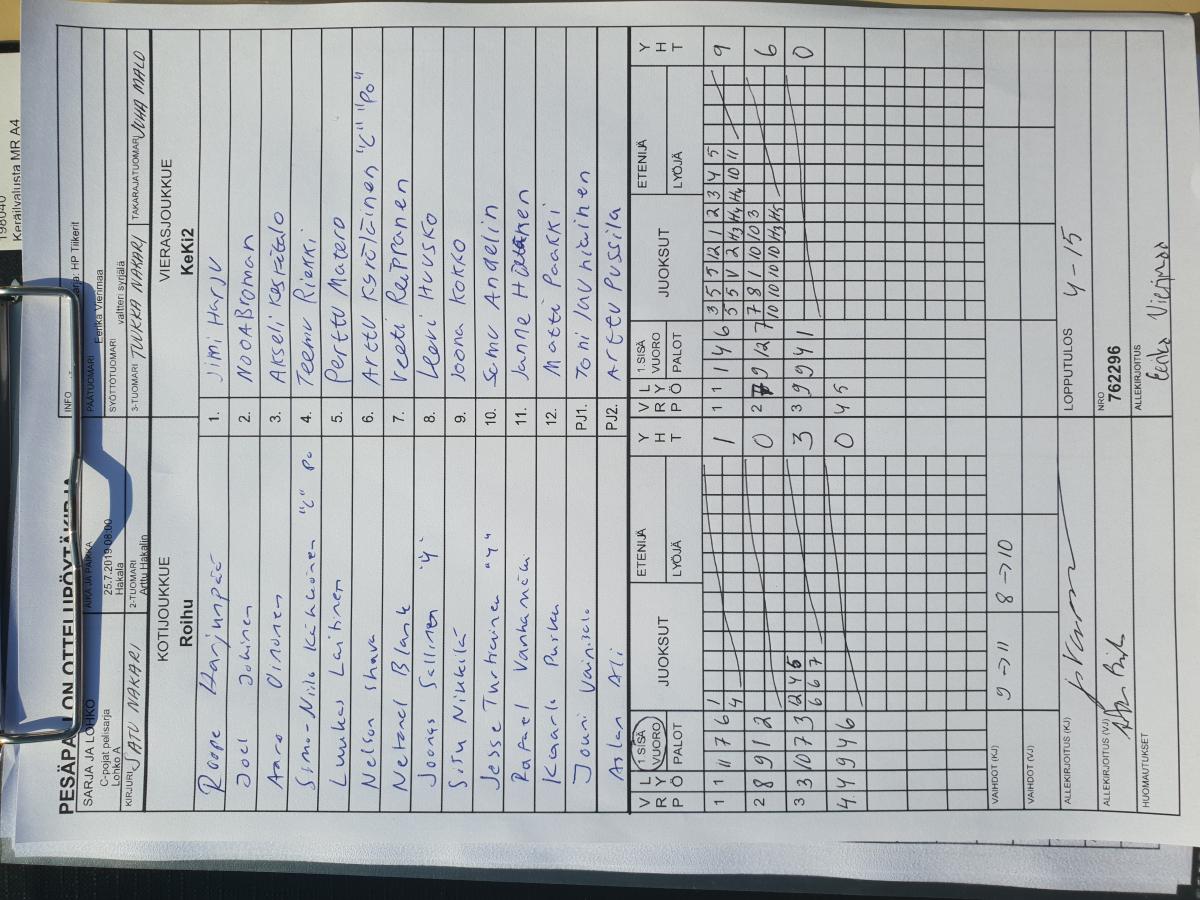 198040
Keräilvalusta MR A4
PESÄPALLON OTTELUPÖYTÄKIRJA
SARJA JA LOHKO
C-pojat pelisarja
Lohko A
AIKA JA PAIKKA
25.7.2019 08:00
Hakala
INFO
PÄÄTUOMARI
Eerika Vierimaa
SYÖTTÖTUOMARI
valtteri syrjälä
KIRJURI SATU NAKARI
2-TUOMARI
Arttu Hakalin
3-TUOMARI TUUKKA NAKARI
TAKARAJATUOMARI JUHA MALO
KOTIJOUKKUE
Roihu
VIERASJOUKKUE
KeKi2
Roope Harjunpää 1. Jimi Harju
Joel Jokinen 2. NOOA Broman
Aaro Oinonen 3. Akseli Keskitalo
Simo-Niilo Kähkönen "C" Po 4. Teemu Riekki
Luukas Laitinen 5. Perttu Matero
Nelson Shava 6. Arttu Karöläinen "C" "Po"
Netanel Blank 7. Veeti Reippanen
Joonas Sallinen "4" 8. Leevi Huusko
Situ Nikkilä 9. Joona Kokko
Jesse Turtiainen "4" 10. Samu Angelin
Rafael Vanhamäki 11. Janne
Kaarle Pursu 12. Matti Paakki
Jouni Vainisalo PJ1. Toni Juvniainen
Aslan Ali PJ2. Arttu Pussila
V R P L Y Ö 1.SISÄ VUORO PALOT JUOKSUT ETENIJÄ LYÖJÄ Y H T
1 1 11 7 6 1 4 1
2 8 9 1 2 0
3 3 10 7 3 2 4 5 6 6 7 3
4 4 9 4 6 0
V R P L Y Ö 1.SISÄ VUORO PALOT JUOKSUT ETENIJÄ LYÖJÄ Y H T
1 1 1 4 6 3 5 5 12 1 2 3 4 5 9
5 5 V 2 H3 H4 H4 10 11
2 9 12 7 7 8 1 10 10 3 6
10 10 10 10 H3 H5
3 9 9 4 1 0
4 5
VAIHDOT (KJ) 9→11 8→10
VAIHDOT (VJ)
ALLEKIRJOITUS (KJ)
ALLEKIRJOITUS (VJ)
HUOMAUTUKSET
LOPPUTULOS 4-15
NRO
762296
ALLEKIRJOITUS
Eerika Vierimaa